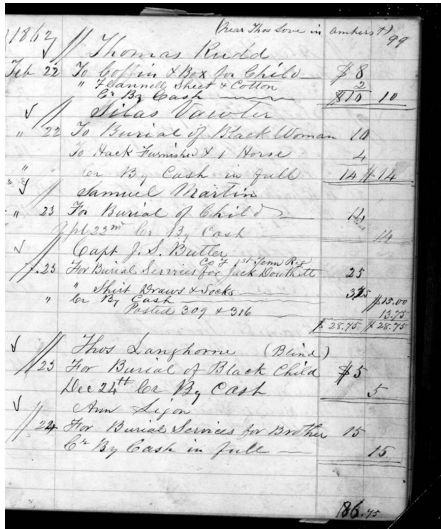 (near Thos Love in amherst) 99
1862 // Thomas Rudd
Feb 22 To Coffin & Box for Child $8
" Flannell Sheet & Cotton 2
Cr By Cash $10 10
√ // Silas Vawter
" 22 To Burial of Black Woman 10
To Hack Furnished & 1 Horse 4
" Cr By Cash in full 14 $14
√ // Samuel Martin
" 23 For Burial of Child 14
Apl 23rd Cr By Cash 14
√ // Capt J. S. Butler
Co F 1st Tenn Reg
23 For Burial Services for Jack Douthett 25
" Shirt Draws & Socks 3.75 $15.00
" Cr By Cash 13.75
Posted 309 & 316 $28.75 $28.75
√ // Thos Langhorne (Blind)
23 For Burial of Black Child $5
Dec 24th Cr By Cash 5
√ // Ann Ligon
24 For Burial Services for Brother 15
Cr By Cash in full 15
86.75